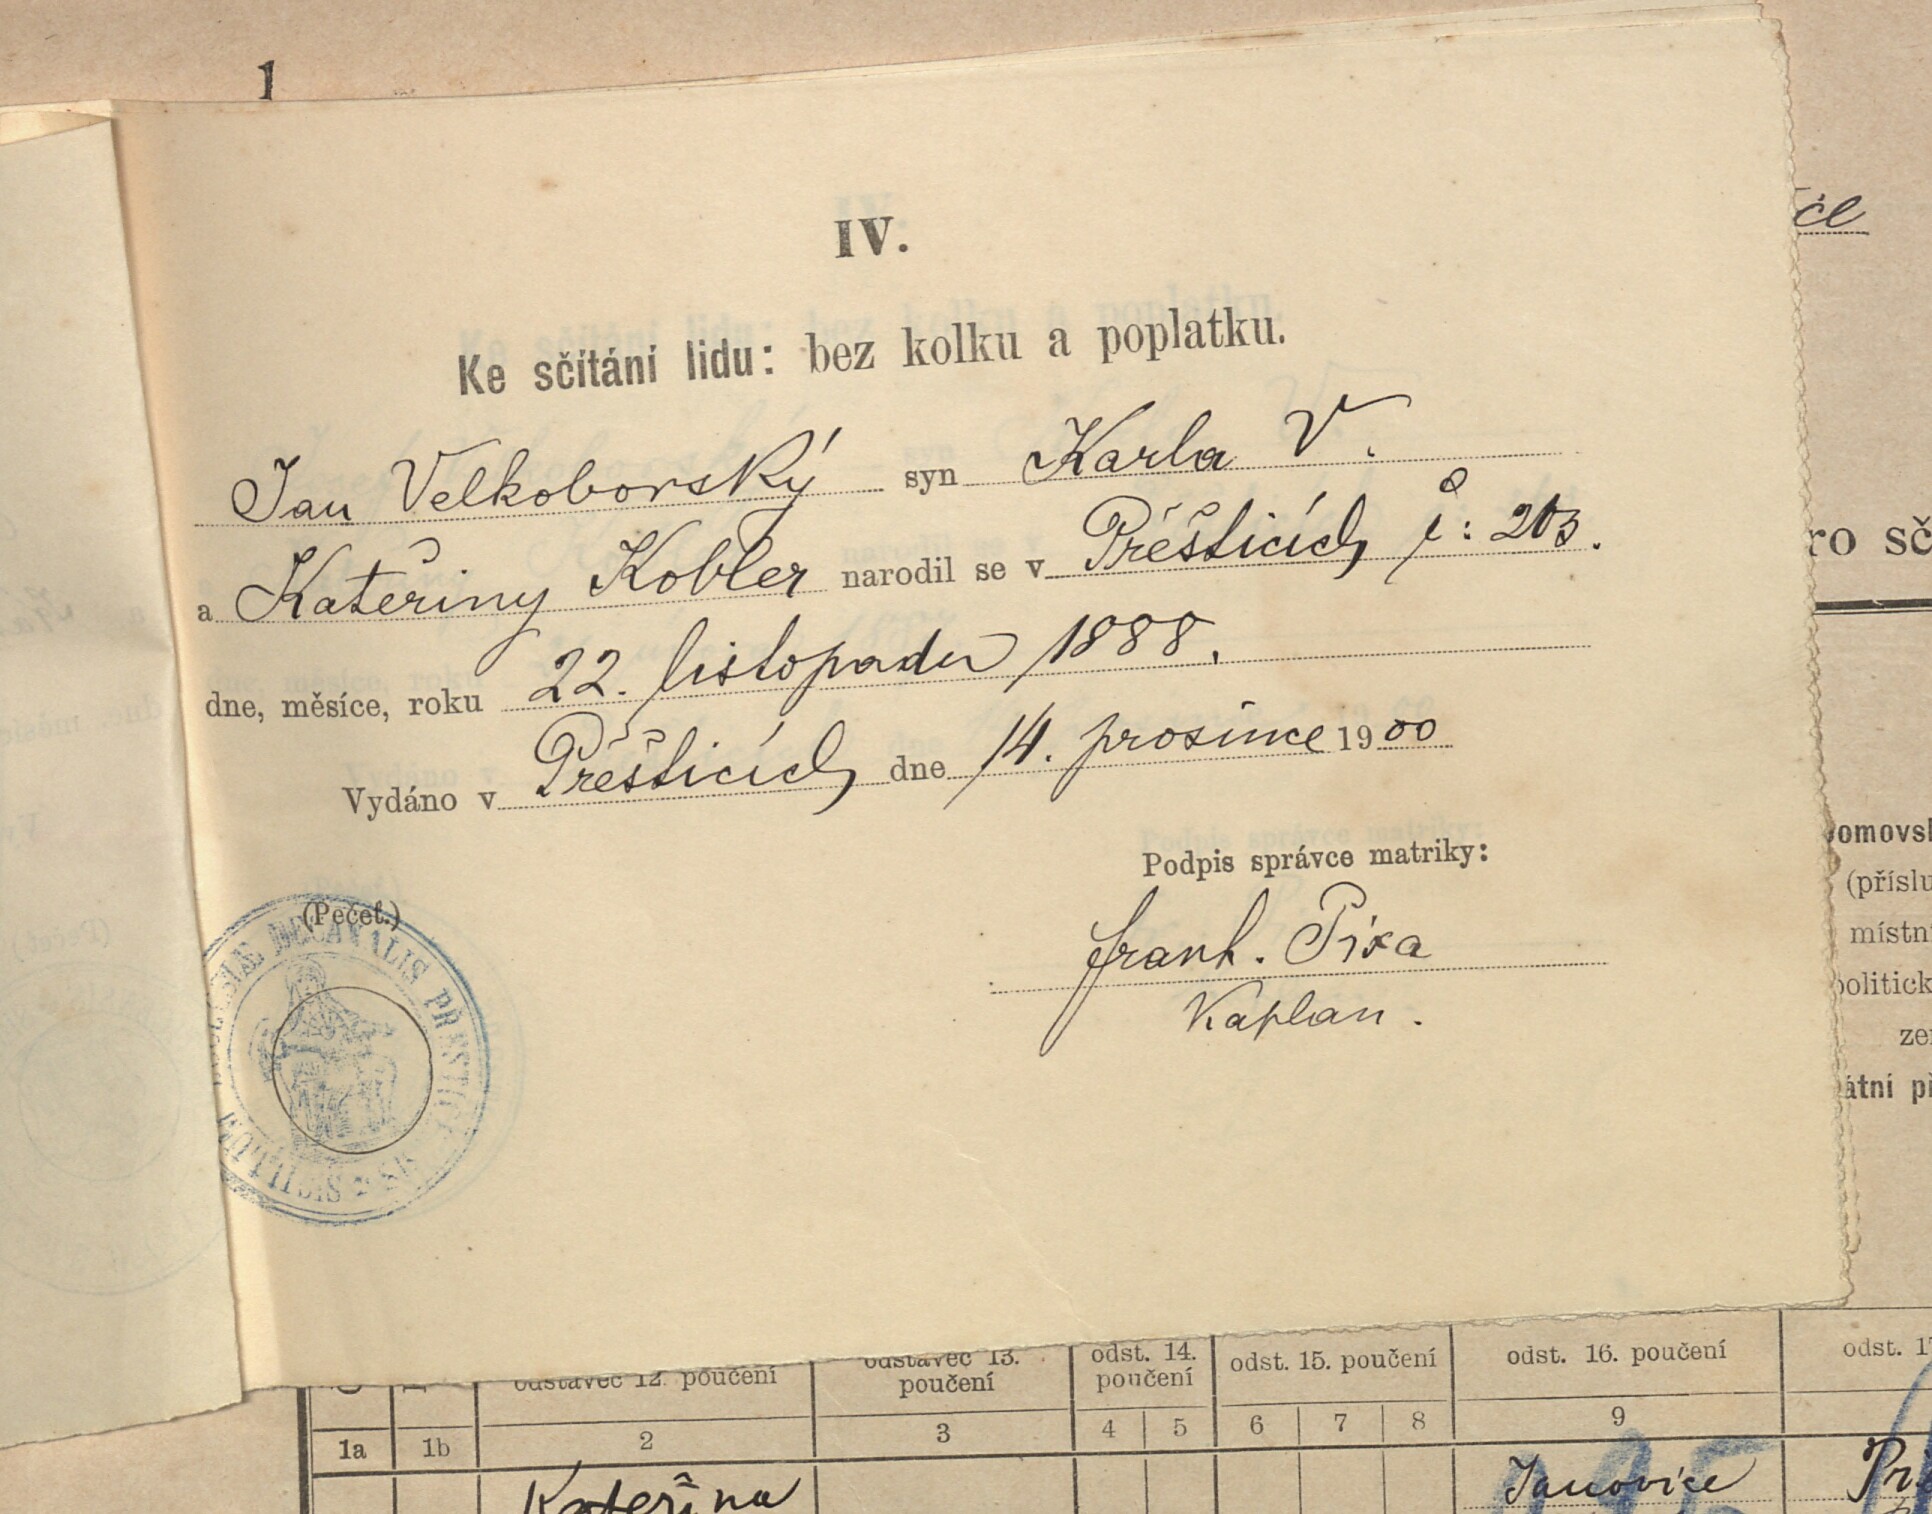 1
IV.
Ke sčítání lidu: bez kolku a poplatku.
Jan Velkoborský syn Karla V.
a Kateřiny Kobler narodil se v Přešticích č: 203.
dne, měsíce, roku 22. listopadu 1888.
Vydáno v Přešticích dne 14. prosince 1900
Podpis správce matriky:
(Pečeť.)
Frant. Pixa
Kaplan.
DECANALIS
SIGILLUM
ro sč
(příslu
místn
politick
ze
átní př
odstavec 12. poučení
odstavec 13. poučení
odst. 14. poučení
odst. 15. poučení
odst. 16. poučení
odst. 17
1a 1b 2 3 4 5 6 7 8 9
Kateřina
Janovice
Př